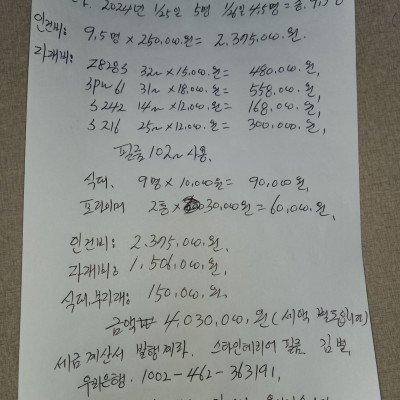 2024년 1/25일 5명 1/26일 4.5명 = 총 9.5명
인건비: 9.5명 × 250,000.원 = 2,375,000.원.
자재비: Z828S 32m × 15,000.원 = 480,000.원,
SPW 61 31m × 18,000.원 = 558,000.원,
S242 14m × 12,000.원 = 168,000.원,
S216 25m × 12,000.원 = 300,000.원,
필름 102m 사용.
식대. 9명 × 10,000원 = 90,000원,
프라이머 2통 × 30,000원 = 60,000원,
인건비: 2,375,000.원.
자재비: 1,506,000.원,
식대,부자재: 150,000.원.
4,030,000.원 (세액 별도입니다)
세금계산서 발행계좌. 스타인테리어 필름
우리은행. 1002-462-363191,